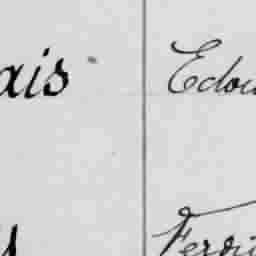 ais Edou
Ferdi